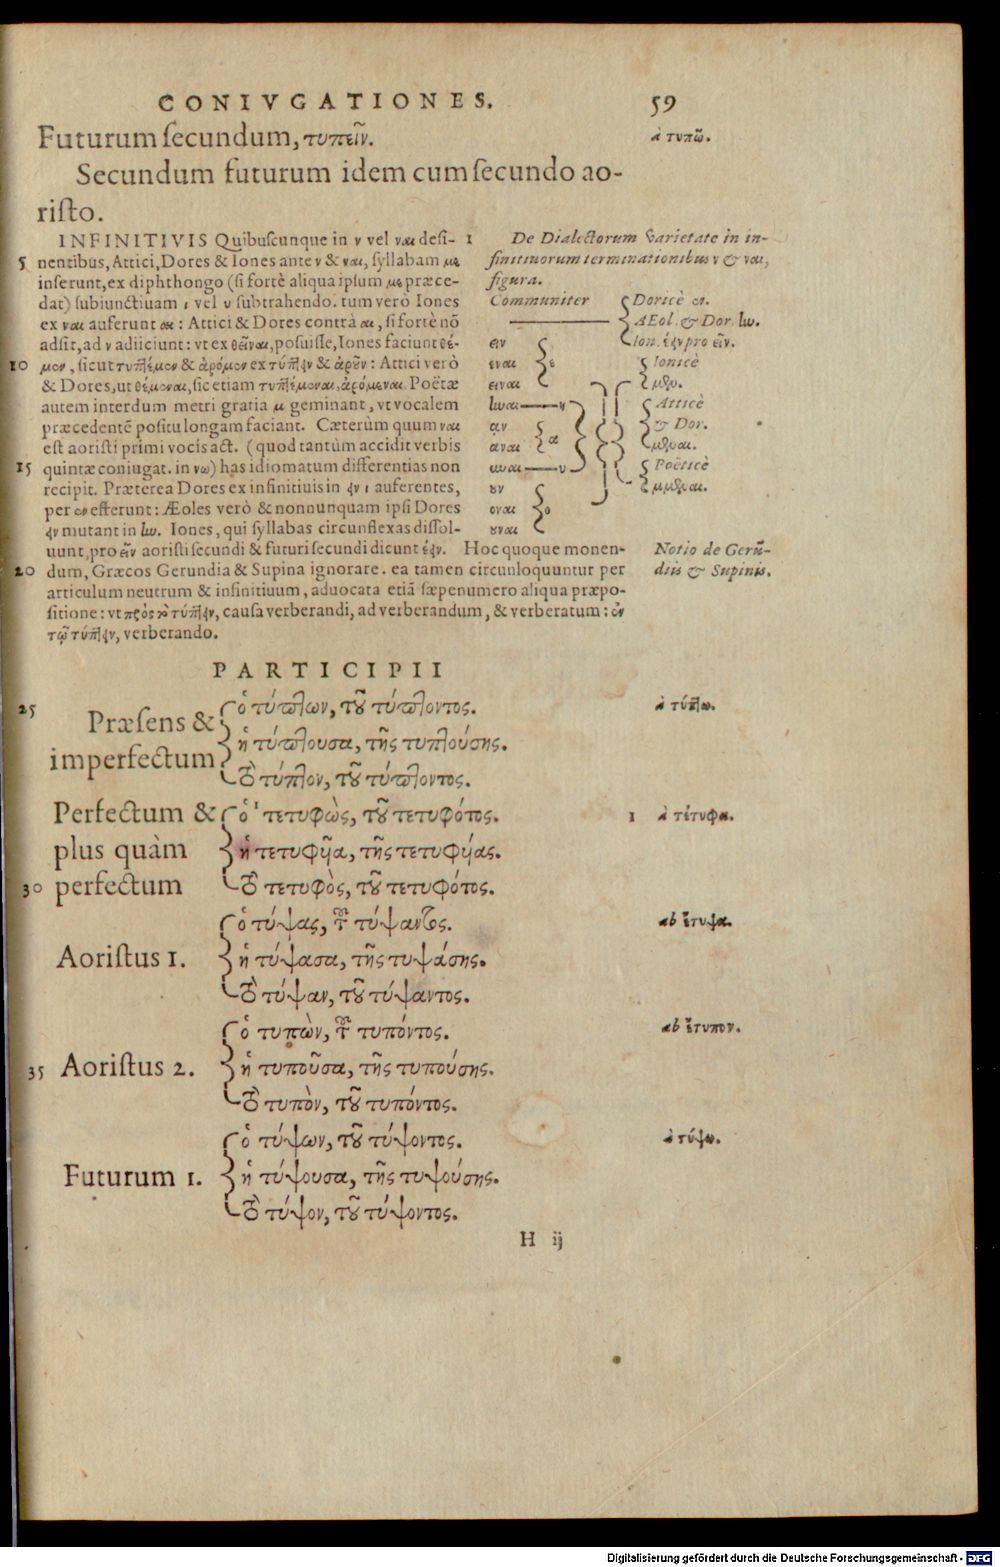 CONIVGATIONES. 59
Futurum ſecundum, τυπεῖν. à τυπῶ.
Secundum futurum idem cum ſecundo ao-
riſto.
INFINITIVIS Quibuſcunque in ν vel ναι deſi-
5 nentibus, Attici, Dores & Iones ante ν & ναι, ſyllabam με
inſerunt, ex diphthongo (ſi fortè aliqua ipſum με præce-
dat) ſubiunctiuam ι vel υ ſubtrahendo. tum verò Iones
ex ναι auferunt αι: Attici & Dores contrà αι, ſi fortè nō
adſit, ad ν adiiciunt: vt ex θεῖναι, poſuiſſe, Iones faciunt θέ-
10 μεν, ſicut τυπτέμεν & ἀρόμεν ex τύπτειν & ἀροῦν: Attici verò
& Dores, ut θέμεναι, ſic etiam τυπτέμεναι, ἀρόμεναι. Poëtæ
autem interdum metri gratia μ geminant, vt vocalem
præcedentē poſitu longam faciant. Cæterùm quum ναι
eſt aoriſti primi vocis act. (quod tantùm accidit verbis
15 quintæ coniugat. in νω) has idiomatum differentias non
recipit. Præterea Dores ex infinitiuis in ειν ι auferentes,
per εν efferunt: Æoles verò & nonnunquam ipſi Dores
ειν mutant in ην. Iones, qui ſyllabas circunflexas diſſol-
uunt, pro εῖν aoriſti ſecundi & futuri ſecundi dicunt έειν. Hoc quoque monen-
20 dum, Græcos Gerundia & Supina ignorare. ea tamen circunloquuntur per
articulum neutrum & infinitiuum, aduocata etiā ſæpenumero aliqua præpo-
ſitione: vt πρὸς τὸ τύπτειν, cauſa verberandi, ad verberandum, & verberatum: ἐν
τῷ τύπτειν, verberando.
1 De Dialectorum varietate in in-
finitiuorum terminationibus ν & ναι,
figura.
Communiter Doricè εν.
AEol. & Dor. ην.
Ion. έειν pro εῖν.
ειν
εναι ε
ειναι
ηναι ν
αν
αναι α
υναι υ
ουν
οναι ο
ουναι
Ionicè
μεν.
Atticè
& Dor.
μεναι.
Poëticè
μμεναι.
Notio de Gerū-
diis & Supinis.
PARTICIPII
25 Præſens &
imperfectum
ὁ τύπτων, τοῦ τύπτοντος. à τύπτω.
ἡ τύπτουσα, τῆς τυπτούσης.
τὸ τύπτον, τοῦ τύπτοντος.
Perfectum &
plus quàm
30 perfectum
ὁ ¹ τετυφὼς, τοῦ τετυφότος. 1 à τέτυφα.
ἡ τετυφῖα, τῆς τετυφίας.
τὸ τετυφὸς, τοῦ τετυφότος.
Aoriſtus 1.
ὁ τύψας, τοῦ τύψαντος. ab ἔτυψα.
ἡ τύψασα, τῆς τυψάσης.
τὸ τύψαν, τοῦ τύψαντος.
35 Aoriſtus 2.
ὁ τυπὼν, τοῦ τυπόντος. ab ἔτυπον.
ἡ τυποῦσα, τῆς τυπούσης.
τὸ τυπὸν, τοῦ τυπόντος.
Futurum 1.
ὁ τύψων, τοῦ τύψοντος. à τύψω.
ἡ τύψουσα, τῆς τυψούσης.
τὸ τύψον, τοῦ τύψοντος.
H ij
Digitalisierung gefördert durch die Deutsche Forschungsgemeinschaft - DFG